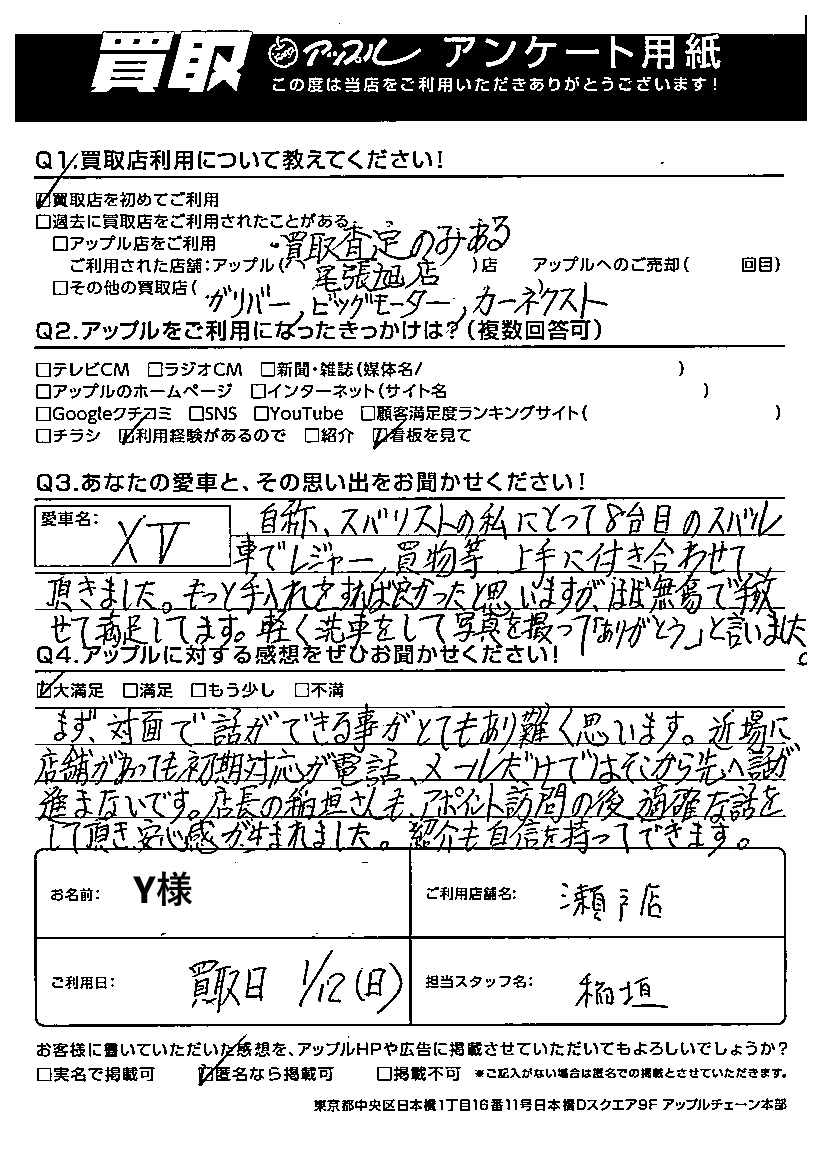 買取 アップル アンケート用紙
この度は当店をご利用いただきありがとうございます!
Q1.買取店利用について教えてください!
☑買取店を初めてご利用
□過去に買取店をご利用されたことがある
□アップル店をご利用 買取査定のみある
ご利用された店舗:アップル( 尾張旭店 )店 アップルへのご売却( 回目)
□その他の買取店( ガリバー, ビッグモーター, カーネクスト
Q2.アップルをご利用になったきっかけは?(複数回答可)
□テレビCM □ラジオCM □新聞・雑誌(媒体名/ )
□アップルのホームページ □インターネット(サイト名 )
□Googleクチコミ □SNS □YouTube □顧客満足度ランキングサイト( )
□チラシ ☑利用経験があるので □紹介 ☑看板を見て
Q3.あなたの愛車と、その思い出をお聞かせください!
愛車名: XV 自称、スバリストの私にとって8台目のスバル
車でレジャー,買物等 上手に付き合わせて
頂きました。もっと手入れをすれば良かったと思いますが、ほぼ無傷で手放
せて満足してます。軽く洗車をして写真を撮って「ありがとう」と言いました。
Q4.アップルに対する感想をぜひお聞かせください!
☑大満足 □満足 □もう少し □不満
まず、対面で話ができる事がとてもあり難く思います。近場に
店舗があっても初期対応が電話、メールだけではそこから先へ話が
進まないです。店長の稲垣さんも、アポイント訪問の後 適確な話を
して頂き安心感が生まれました。紹介も自信を持ってできます。
お名前: Y様 ご利用店舗名: 瀬戸店
ご利用日: 買取日 1/12(日) 担当スタッフ名: 稲垣
お客様に書いていただいた感想を、アップルHPや広告に掲載させていただいてもよろしいでしょうか?
□実名で掲載可 ☑匿名なら掲載可 □掲載不可 *ご記入がない場合は匿名での掲載とさせていただきます。
東京都中央区日本橋1丁目16番11号日本橋Dスクエア9F アップルチェーン本部